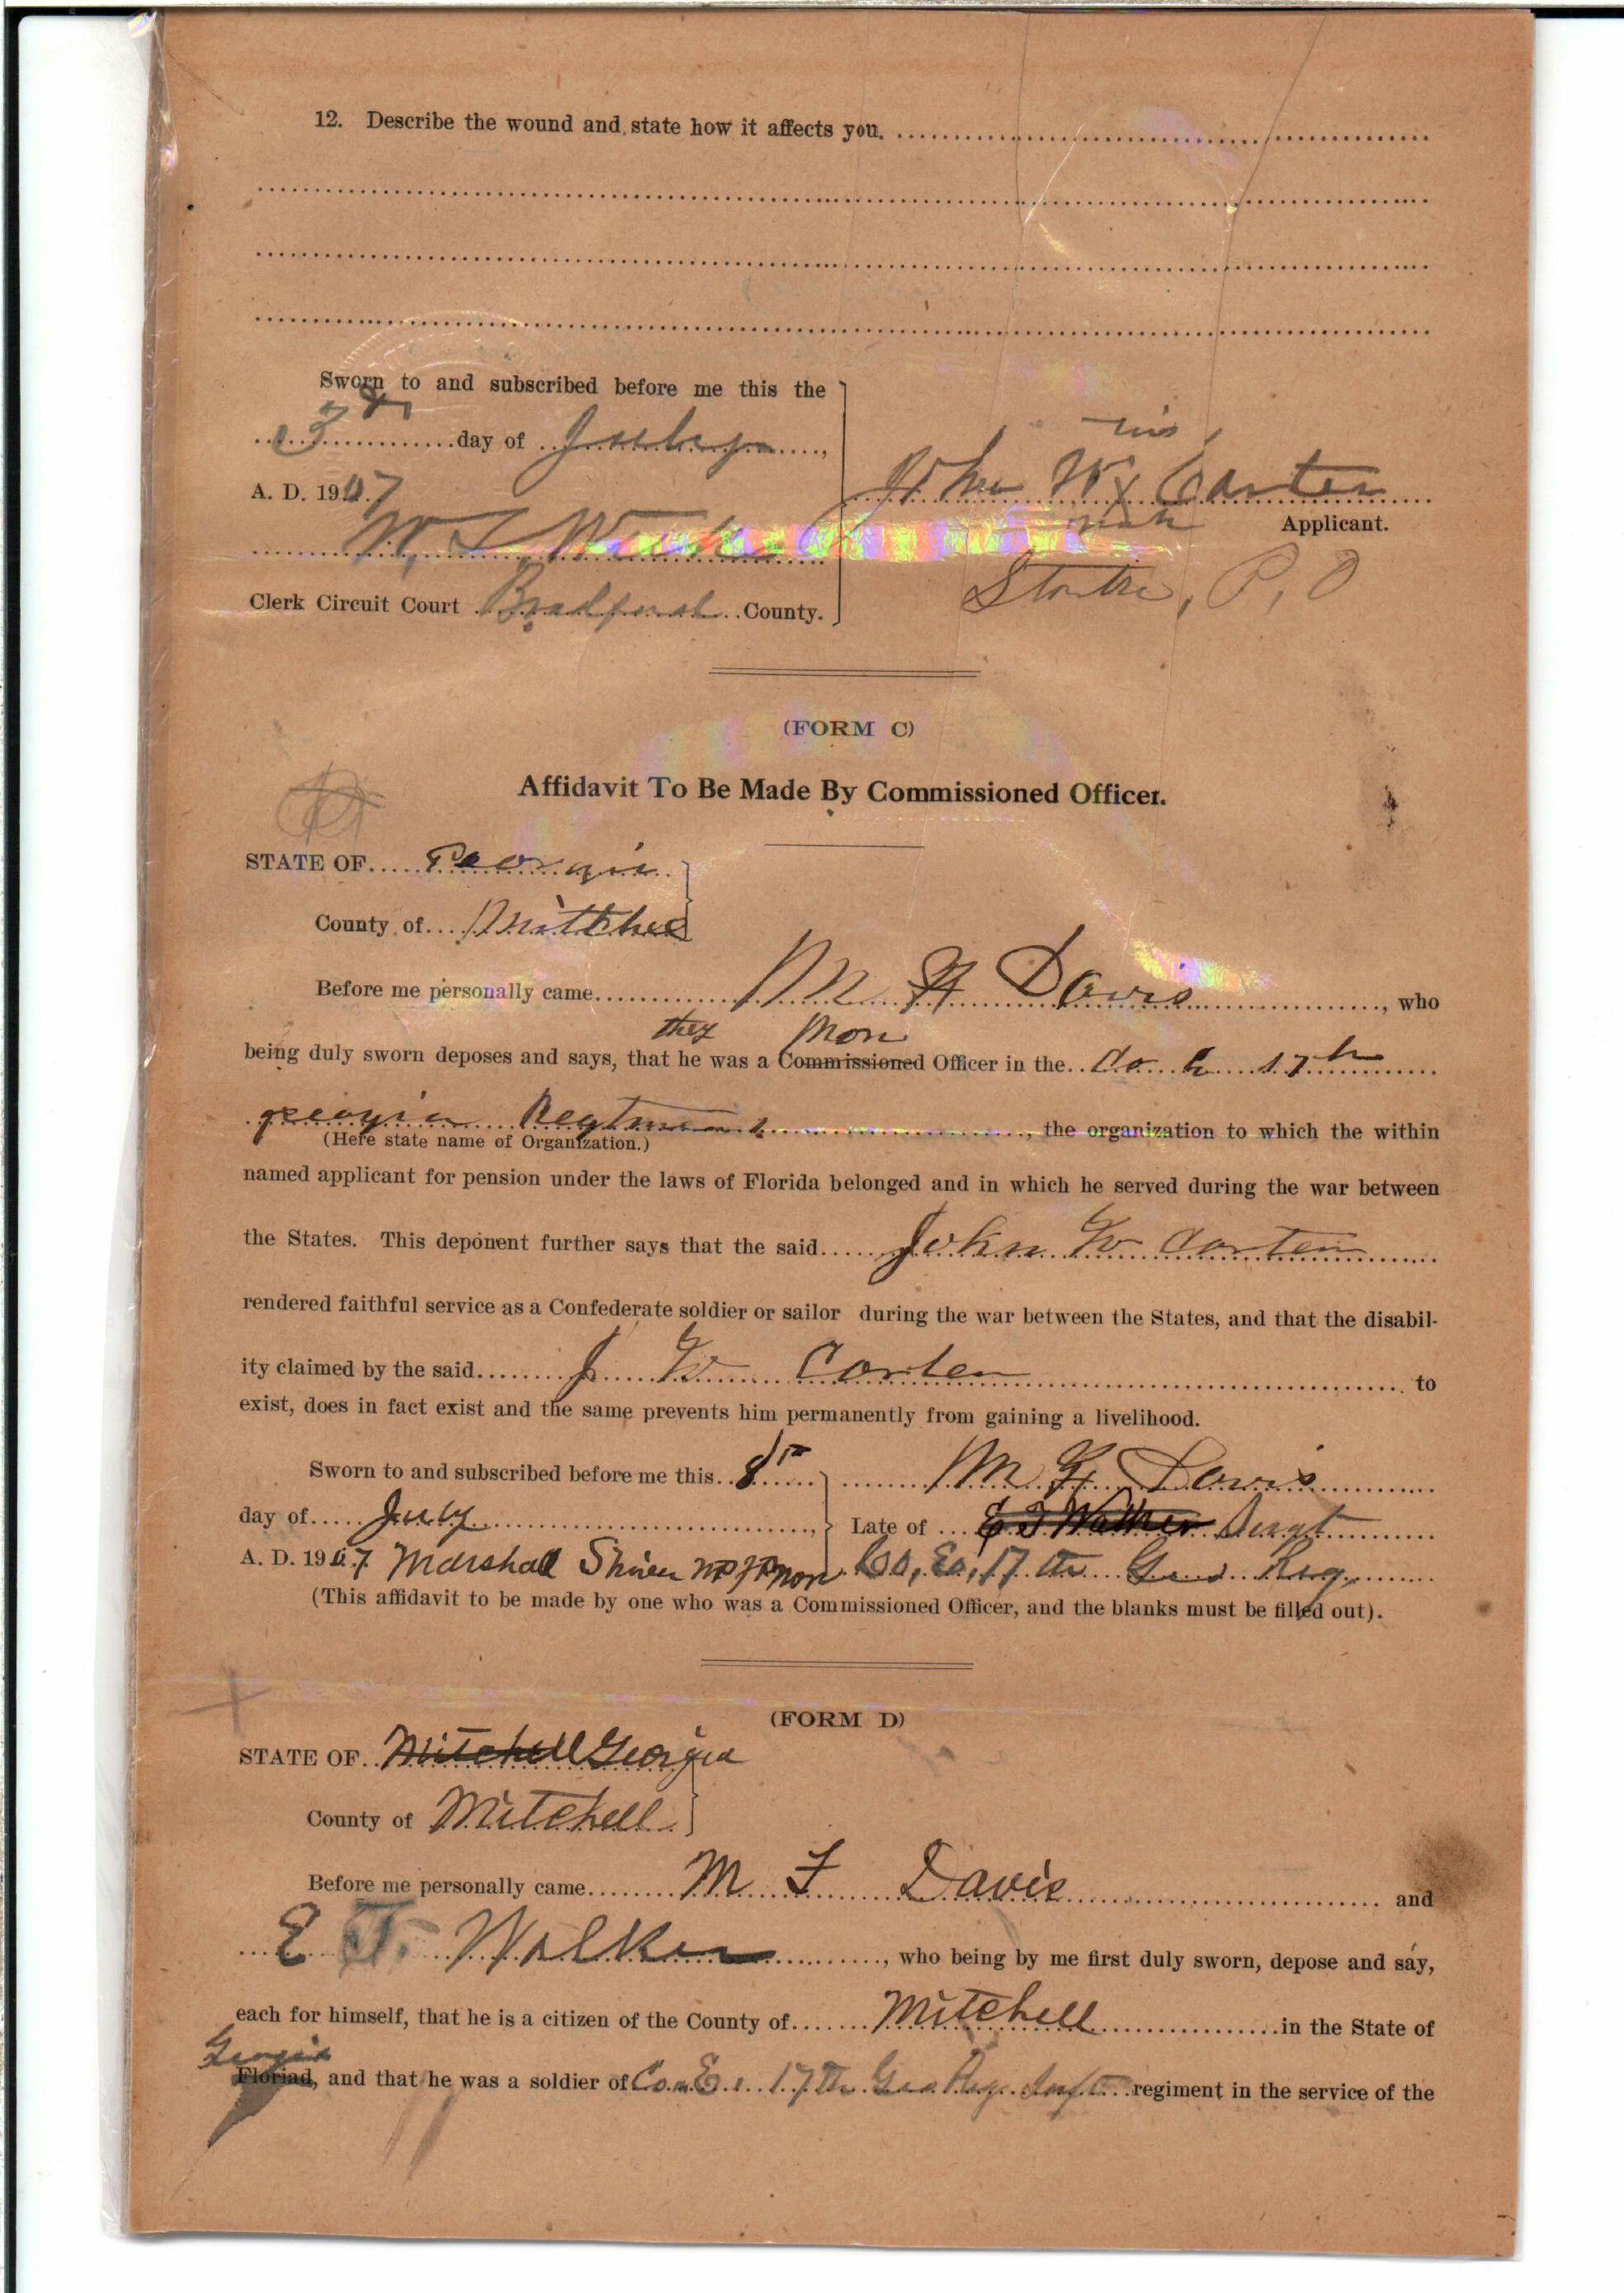 12. Describe the wound and state how it affects you.
Sworn to and subscribed before me this the
3rd day of July,
A. D. 1907
his
John W x Carter
mark
Applicant.
Clerk Circuit Court Bradford County.
Starke, P. O
(FORM C)
Affidavit To Be Made By Commissioned Officer.
STATE OF Georgia
County of Mittchel
Before me personally came M F Davis, who
they Non
being duly sworn deposes and says, that he was a Commissioned Officer in the Co 17th
georgia Regtment, the organization to which the within
(Here state name of Organization.)
named applicant for pension under the laws of Florida belonged and in which he served during the war between
the States. This deponent further says that the said John W Carter
rendered faithful service as a Confederate soldier or sailor during the war between the States, and that the disabil-
ity claimed by the said J W Carter to
exist, does in fact exist and the same prevents him permanently from gaining a livelihood.
Sworn to and subscribed before me this 8th
day of July,
A. D. 1907 Marshall
M F Davis
Late of E T Walker Sergt
Co, E, 17th Geo Reg
(This affidavit to be made by one who was a Commissioned Officer, and the blanks must be filled out).
(FORM D)
STATE OF Mitchell Georgia
County of Mitchell
Before me personally came M F Davis and
E T. Walker, who being by me first duly sworn, depose and say,
each for himself, that he is a citizen of the County of Mitchell in the State of
Georgia
Floriad, and that he was a soldier of Co. E. 17th Geo. Reg. Inft regiment in the service of the